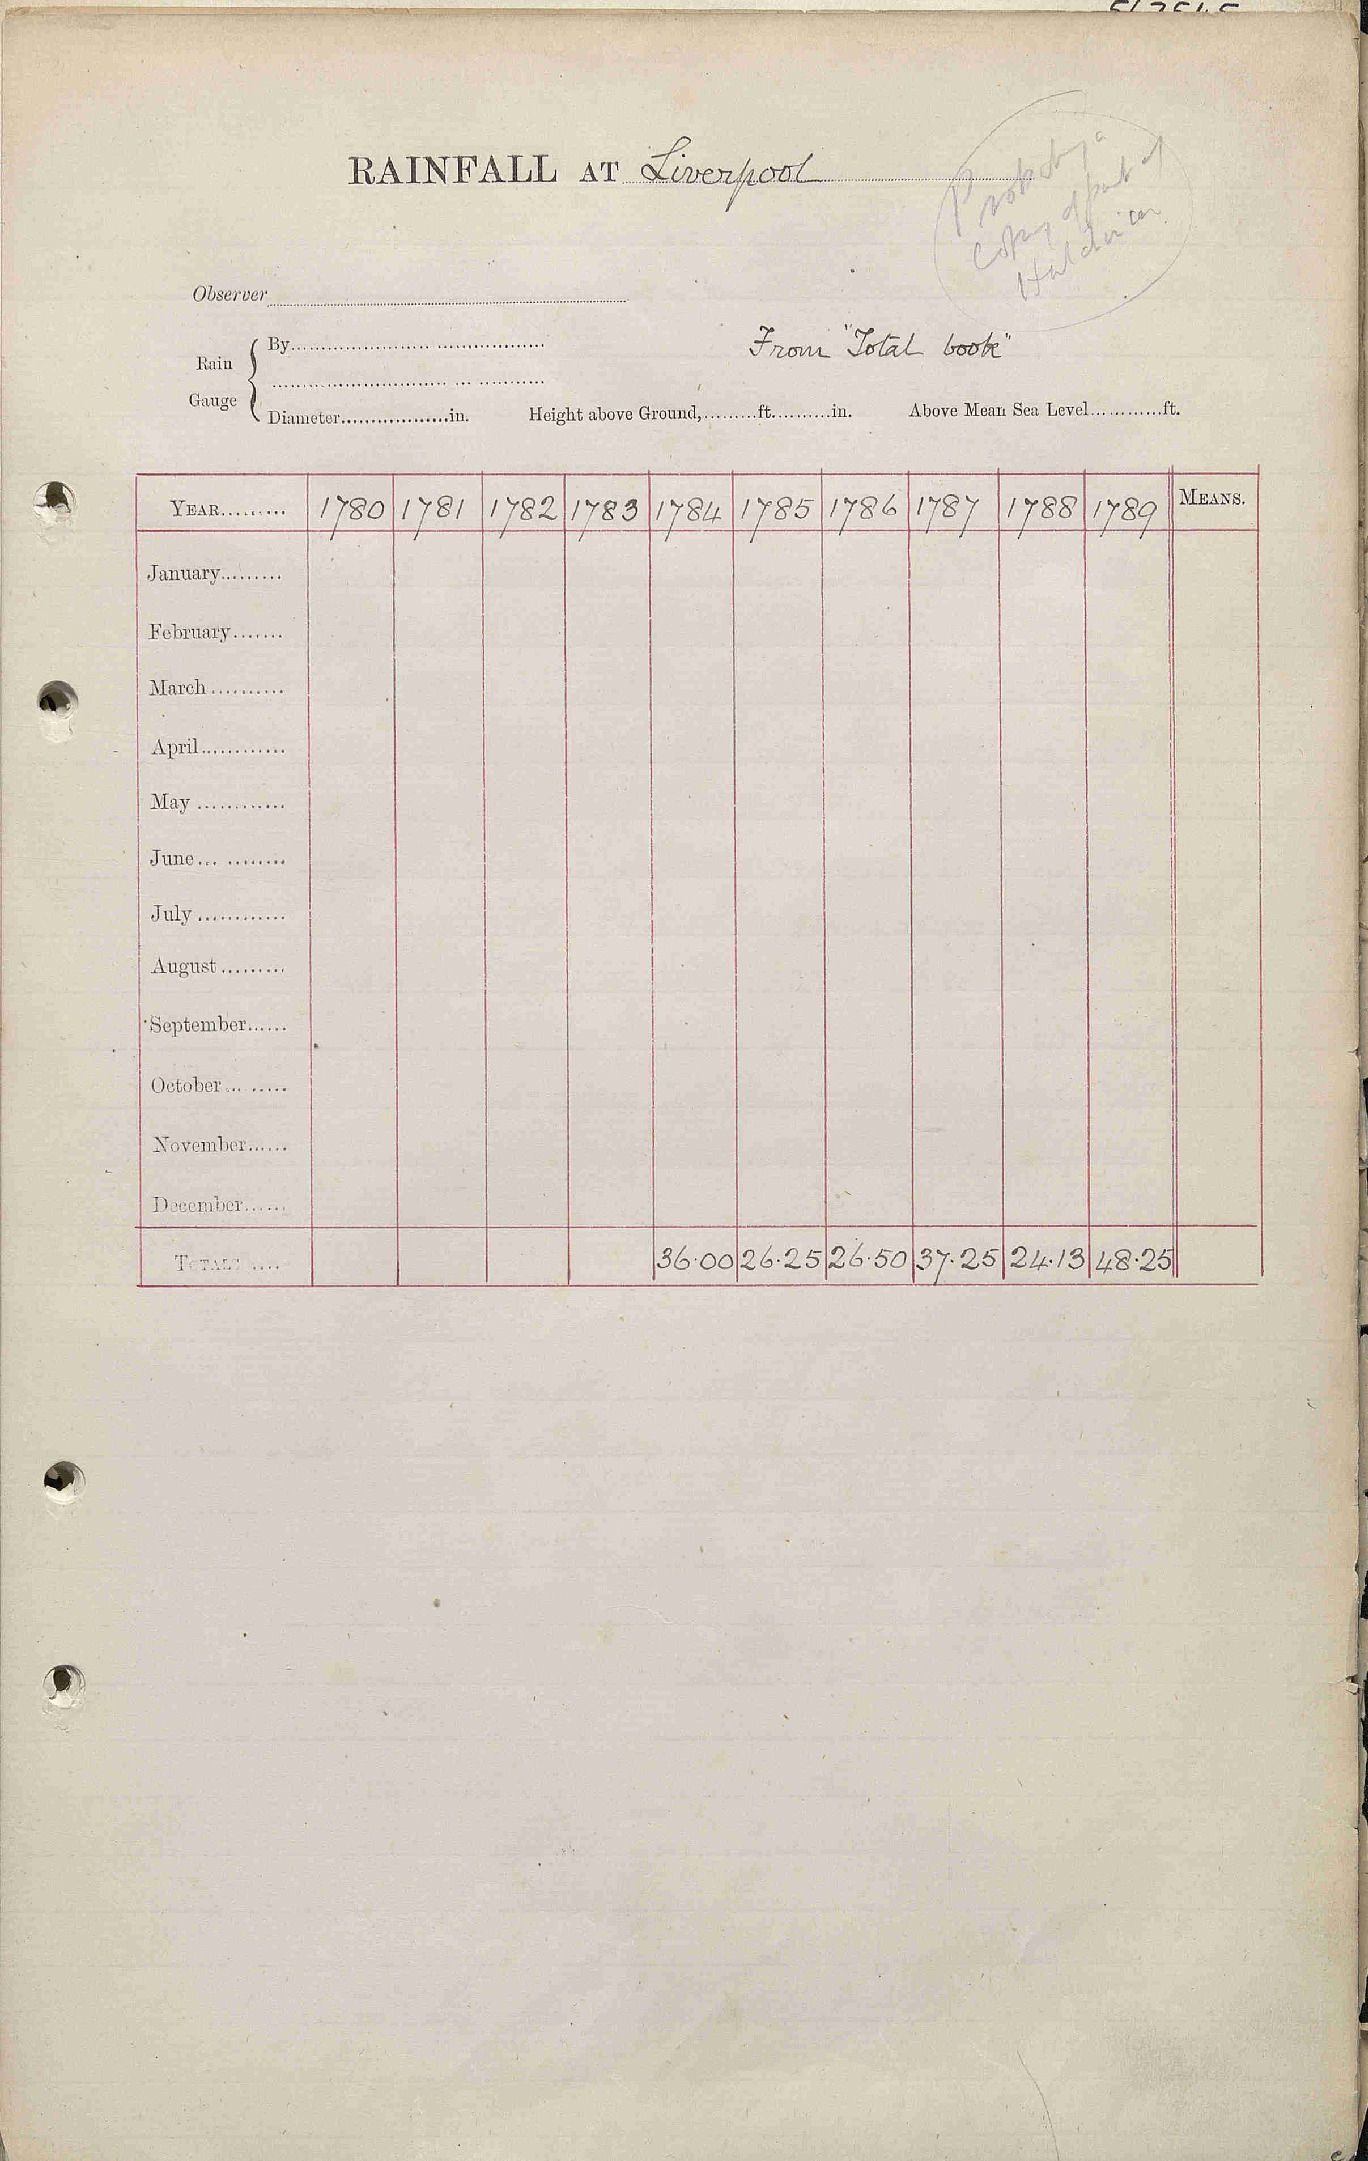 RAINFALL AT Liverpool
Probably a
copy of part of
Observer
From "Total book"
Rain Gauge { By
Diameter in. Height above Ground, ft. in. Above Mean Sea Level ft.
YEAR 1780 1781 1782 1783 1784 1785 1786 1787 1788 1789 MEANS.
January
February
March
April
May
June
July
August
September
October
November
December
TOTALS 36.00 26.25 26.50 37.25 24.13 48.25